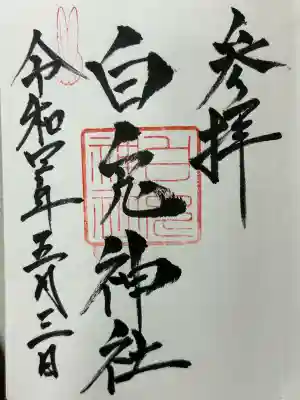 参拝
白兎神社
令和四年五月三日